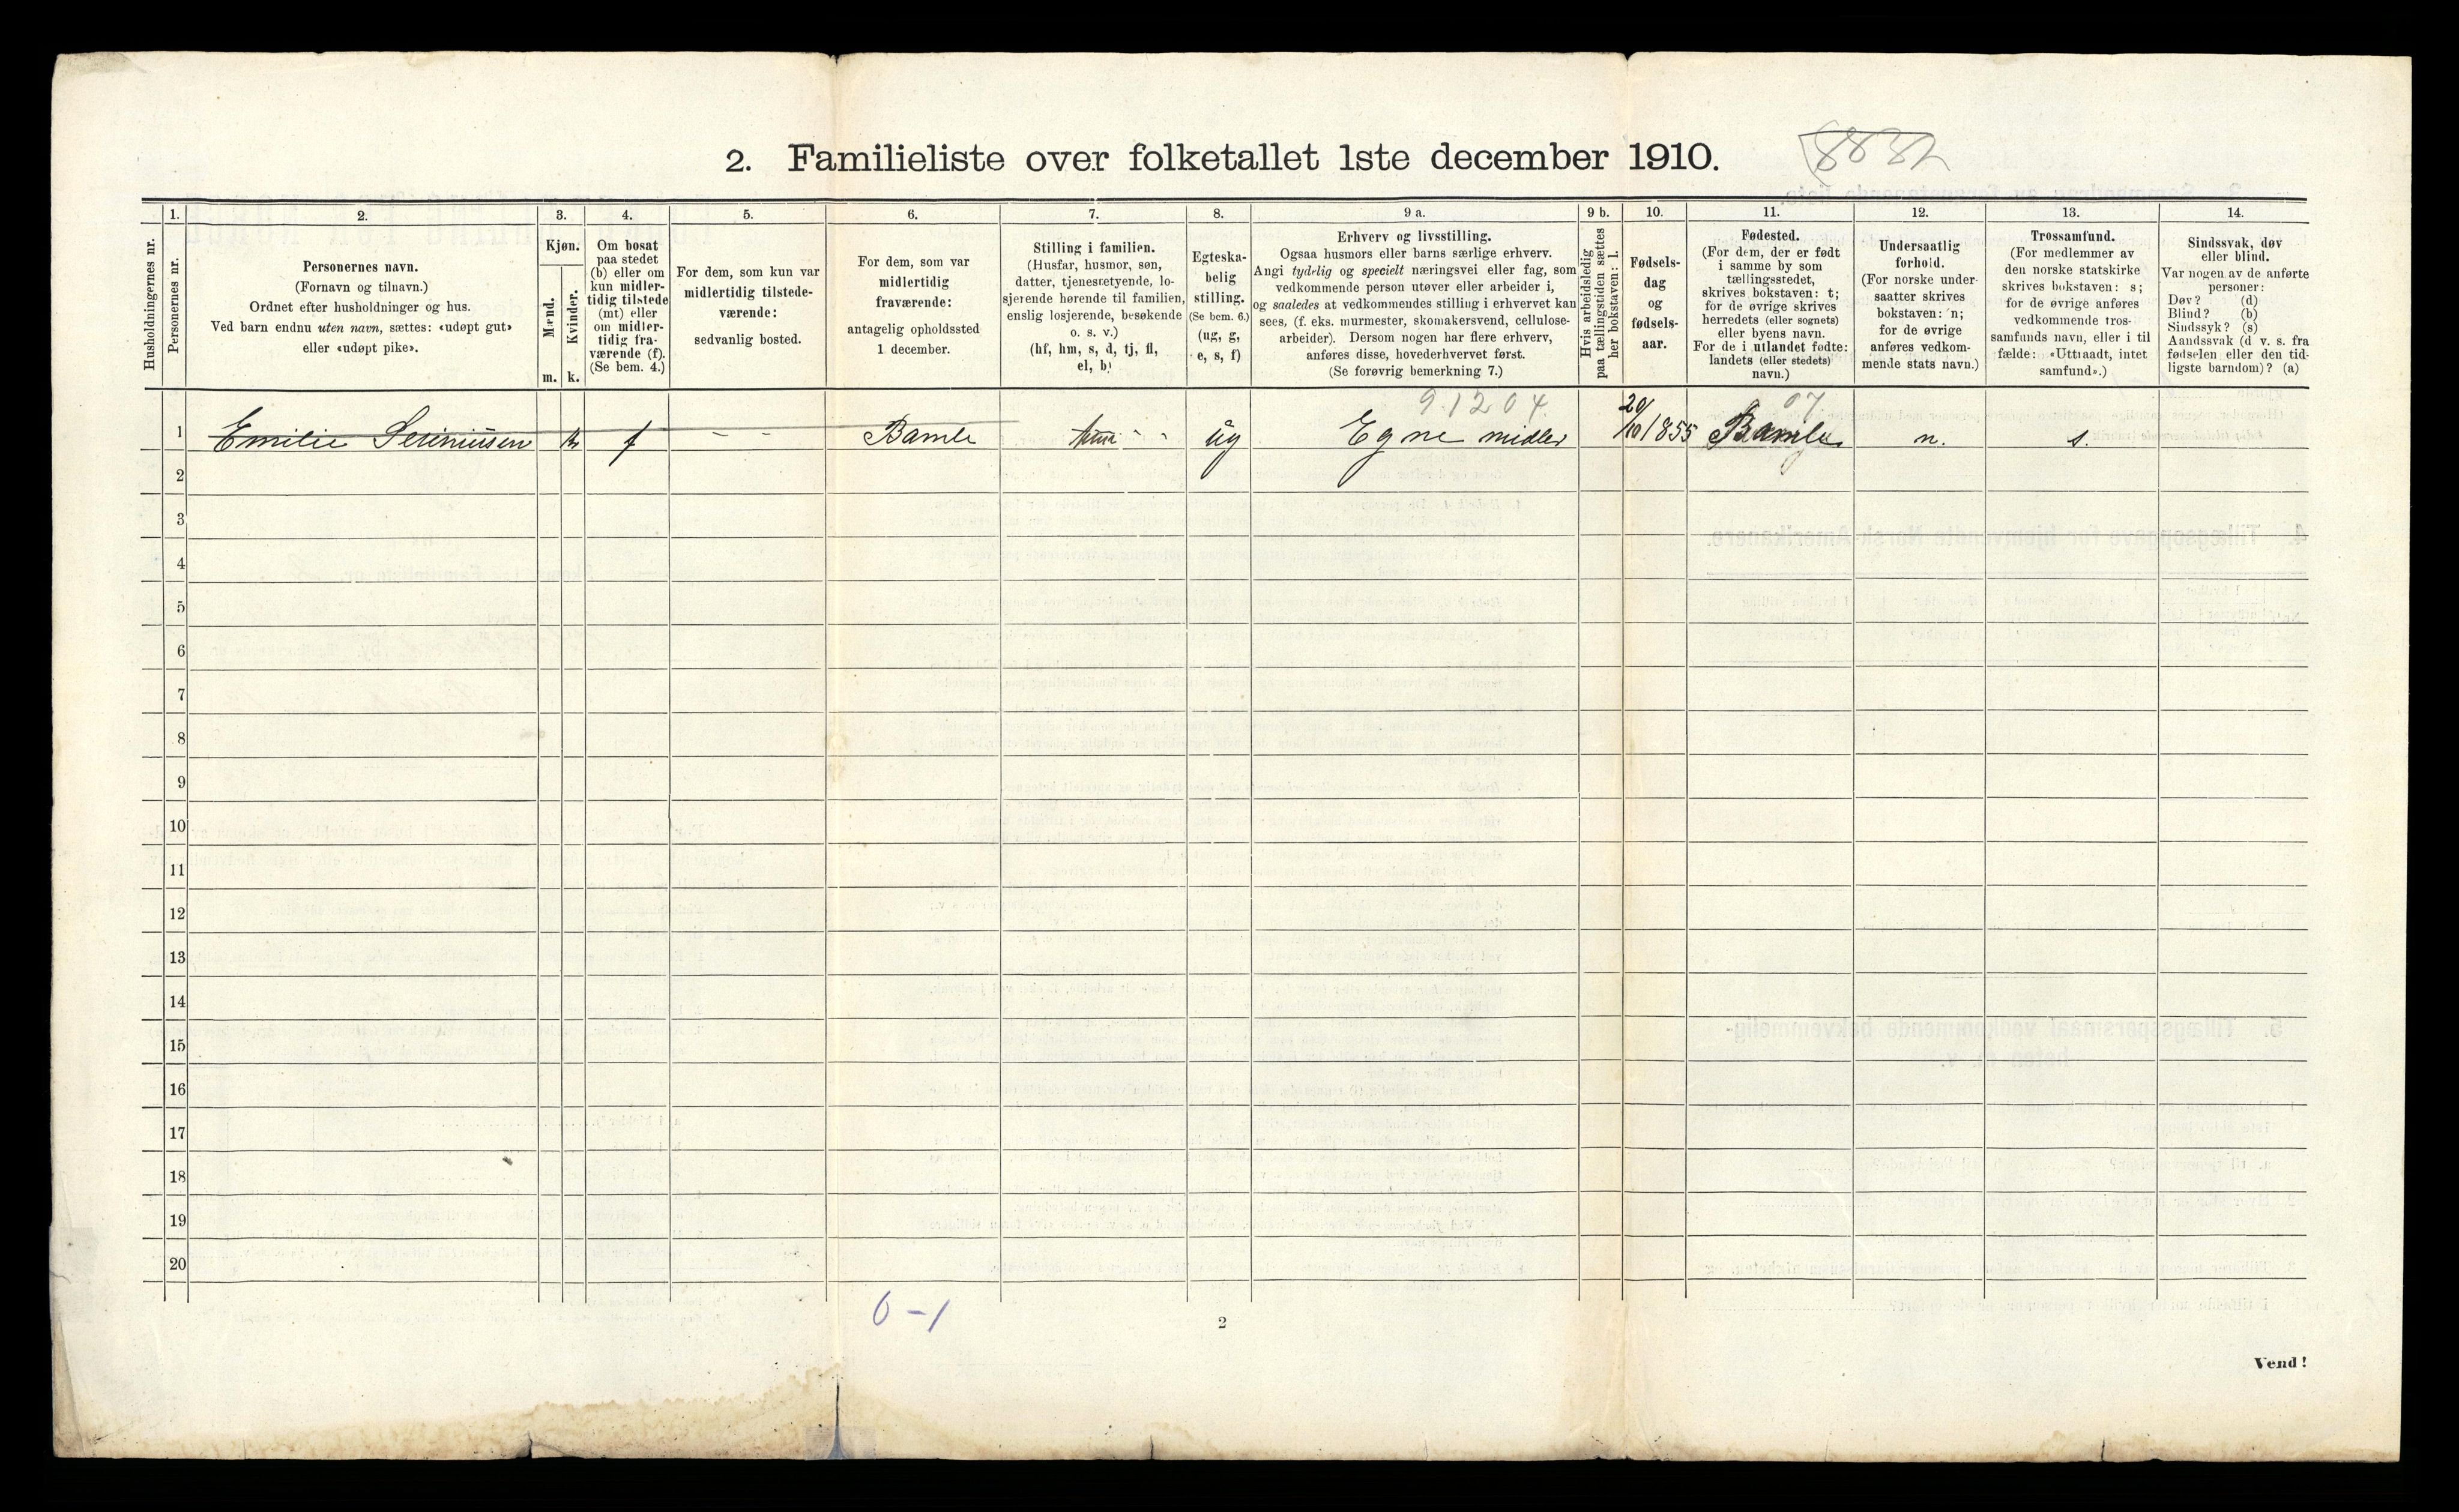 2. Familieliste over folketallet 1ste december 1910.
8832
Husholdningernes nr.
1.
Personernes nr.
2.
Personernes navn.
(Fornavn og tilnavn.)
Ordnet efter husholdninger og hus.
Ved barn endnu uten navn, sættes: «udøpt gut»
eller «udøpt pike».
3.
Kjøn.
Mænd.
Kvinder.
m. k.
4.
Om bosat
paa stedet
(b) eller om
kun midler-
tidig tilstede
(mt) eller
om midler-
tidig fra-
værende (f).
(Se bem. 4.)
5.
For dem, som kun var
midlertidig tilstede-
værende:
sedvanlig bosted.
6.
For dem, som var
midlertidig
fraværende:
antagelig opholdssted
1 december.
7.
Stilling i familien.
(Husfar, husmor, søn,
datter, tjenestetyende, lo-
sjerende hørende til familien,
enslig losjerende, besøkende
o. s. v.)
(hf, hm, s, d, tj, fl,
el, b)
8.
Egteska-
belig
stilling.
(Se bem. 6.)
(ug, g,
e, s, f)
9 a.
Erhverv og livsstilling.
Ogsaa husmors eller barns særlige erhverv.
Angi tydelig og specielt næringsvei eller fag, som
vedkommende person utøver eller arbeider i,
og saaledes at vedkommendes stilling i erhvervet kan
sees, (f. eks. murmester, skomakersvend, cellulose-
arbeider). Dersom nogen har flere erhverv,
anføres disse, hovederhvervet først.
(Se forøvrig bemerkning 7.)
9 b.
Hvis arbeidsledig
paa tællingstiden sættes
her bokstaven: l.
10.
Fødsels-
dag
og
fødsels-
aar.
11.
Fødested.
(For dem, der er født
i samme by som
tællingsstedet,
skrives bokstaven: t;
for de øvrige skrives
herredets (eller sognets)
eller byens navn.
For de i utlandet fødte:
landets (eller stedets)
navn.)
12.
Undersaatlig
forhold.
(For norske under-
saatter skrives
bokstaven: n;
for de øvrige
anføres vedkom-
mende stats navn.)
13.
Trossamfund.
(For medlemmer av
den norske statskirke
skrives bokstaven: s;
for de øvrige anføres
vedkommende tros-
samfunds navn, eller i til
fælde: «Uttraadt, intet
samfund».)
14.
Sindssvak, døv
eller blind.
Var nogen av de anførte
personer:
Døv? (d)
Blind? (b)
Sindssyk? (s)
Aandssvak (d v. s. fra
fødselen eller den tid-
ligste barndom)? (a)
9.1204. 07
1 Emilie Severinsen k f - - Bamle - - ug Egne midler 20/10 1855 Bamle n. s.
2
3
4
5
6
7
8
9
10
11
12
13
14
15
16
17
18
19
20
0-1
2
Vend!